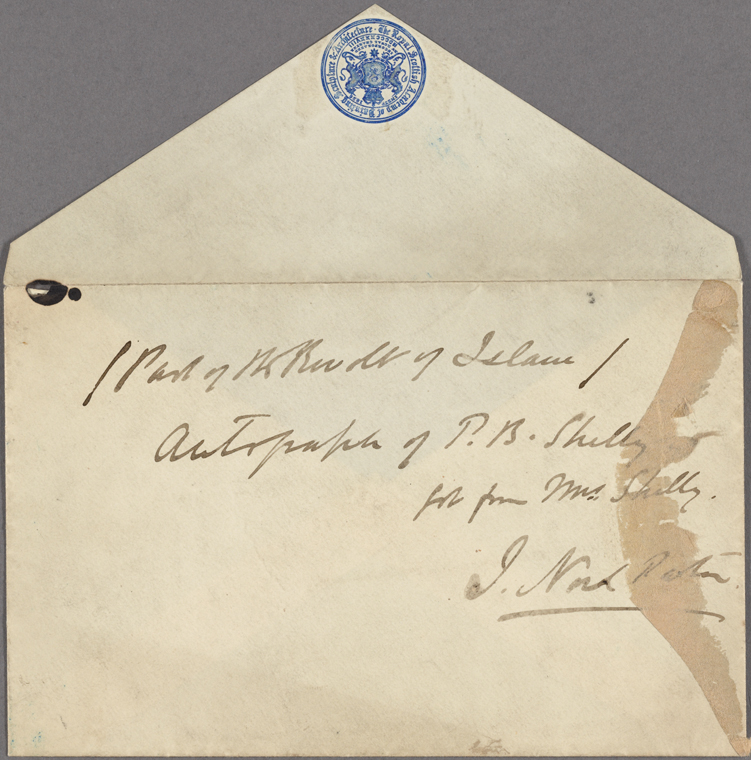 The Royal Scottish Academy of Painting Sculpture & Architecture
(Part of the Revolt of Islam)
Autograph of P. B. Shelly
got from Mrs. Shelly.
J. Noel Paton